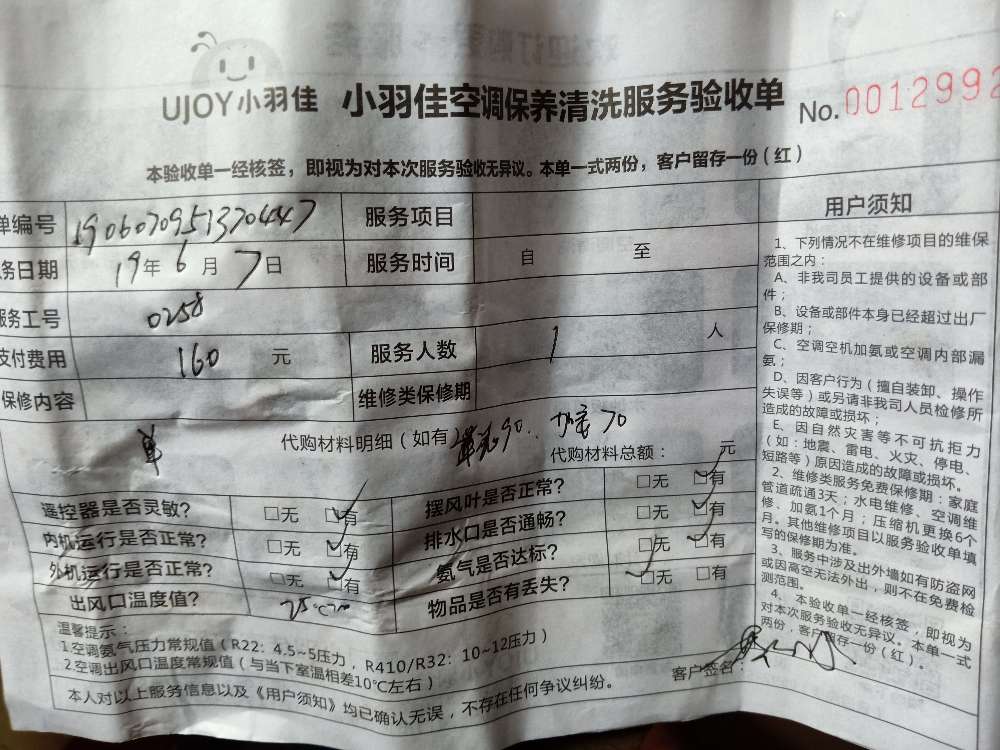 UJOY小羽佳 小羽佳空调保养清洗服务验收单 No.0012992
本验收单一经核签，即视为对本次服务验收无异议。本单一式两份，客户留存一份（红）
单编号 190607095137044447 服务项目
务日期 19年6月7日 服务时间 自 至
服务工号 0258
支付费用 160 元 服务人数 1 人
保修内容 维修类保修期
单 代购材料明细（如有） 90 70
代购材料总额： 元
遥控器是否灵敏？ □无 ☑有 摆风叶是否正常？ □无 ☑有
内机运行是否正常？ □无 ☑有 排水口是否通畅？ □无 ☑有
外机运行是否正常？ □无 ☑有 氨气是否达标？ □无 ☑有
出风口温度值？ 物品是否有丢失？ ☑无 □有
温馨提示：
1.空调氨气压力常规值（R22：4.5~5压力，R410/R32：10~12压力）
2.空调出风口温度常规值（与当下室温相差10℃左右）
本人对以上服务信息以及《用户须知》均已确认无误，不存在任何争议纠纷。
客户签名：
用户须知
1、下列情况不在维修项目的维保
范围之内：
A、非我司员工提供的设备或部
件；
B、设备或部件本身已经超过出厂
保修期；
C、空调空机加氨或空调内部漏
氨；
D、因客户行为（擅自装卸、操作
失误等）或另请非我司人员检修所
造成的故障或损坏；
E、因自然灾害等不可抗拒力
（如：地震、雷电、火灾、停电、
短路等）原因造成的故障或损坏。
2、维修类服务免费保修期：家庭
管道疏通3天；水电维修、空调维
修、加氨1个月；压缩机更换6个
月。其他维修项目以服务验收单填
写的保修期为准。
3、服务中涉及出外墙如有防盗网
或因高空无法外出，则不在免费检
测范围。
4、本验收单一经核签，即视为
对本次服务验收无异议。本单一式
两份，客户留存一份（红）。